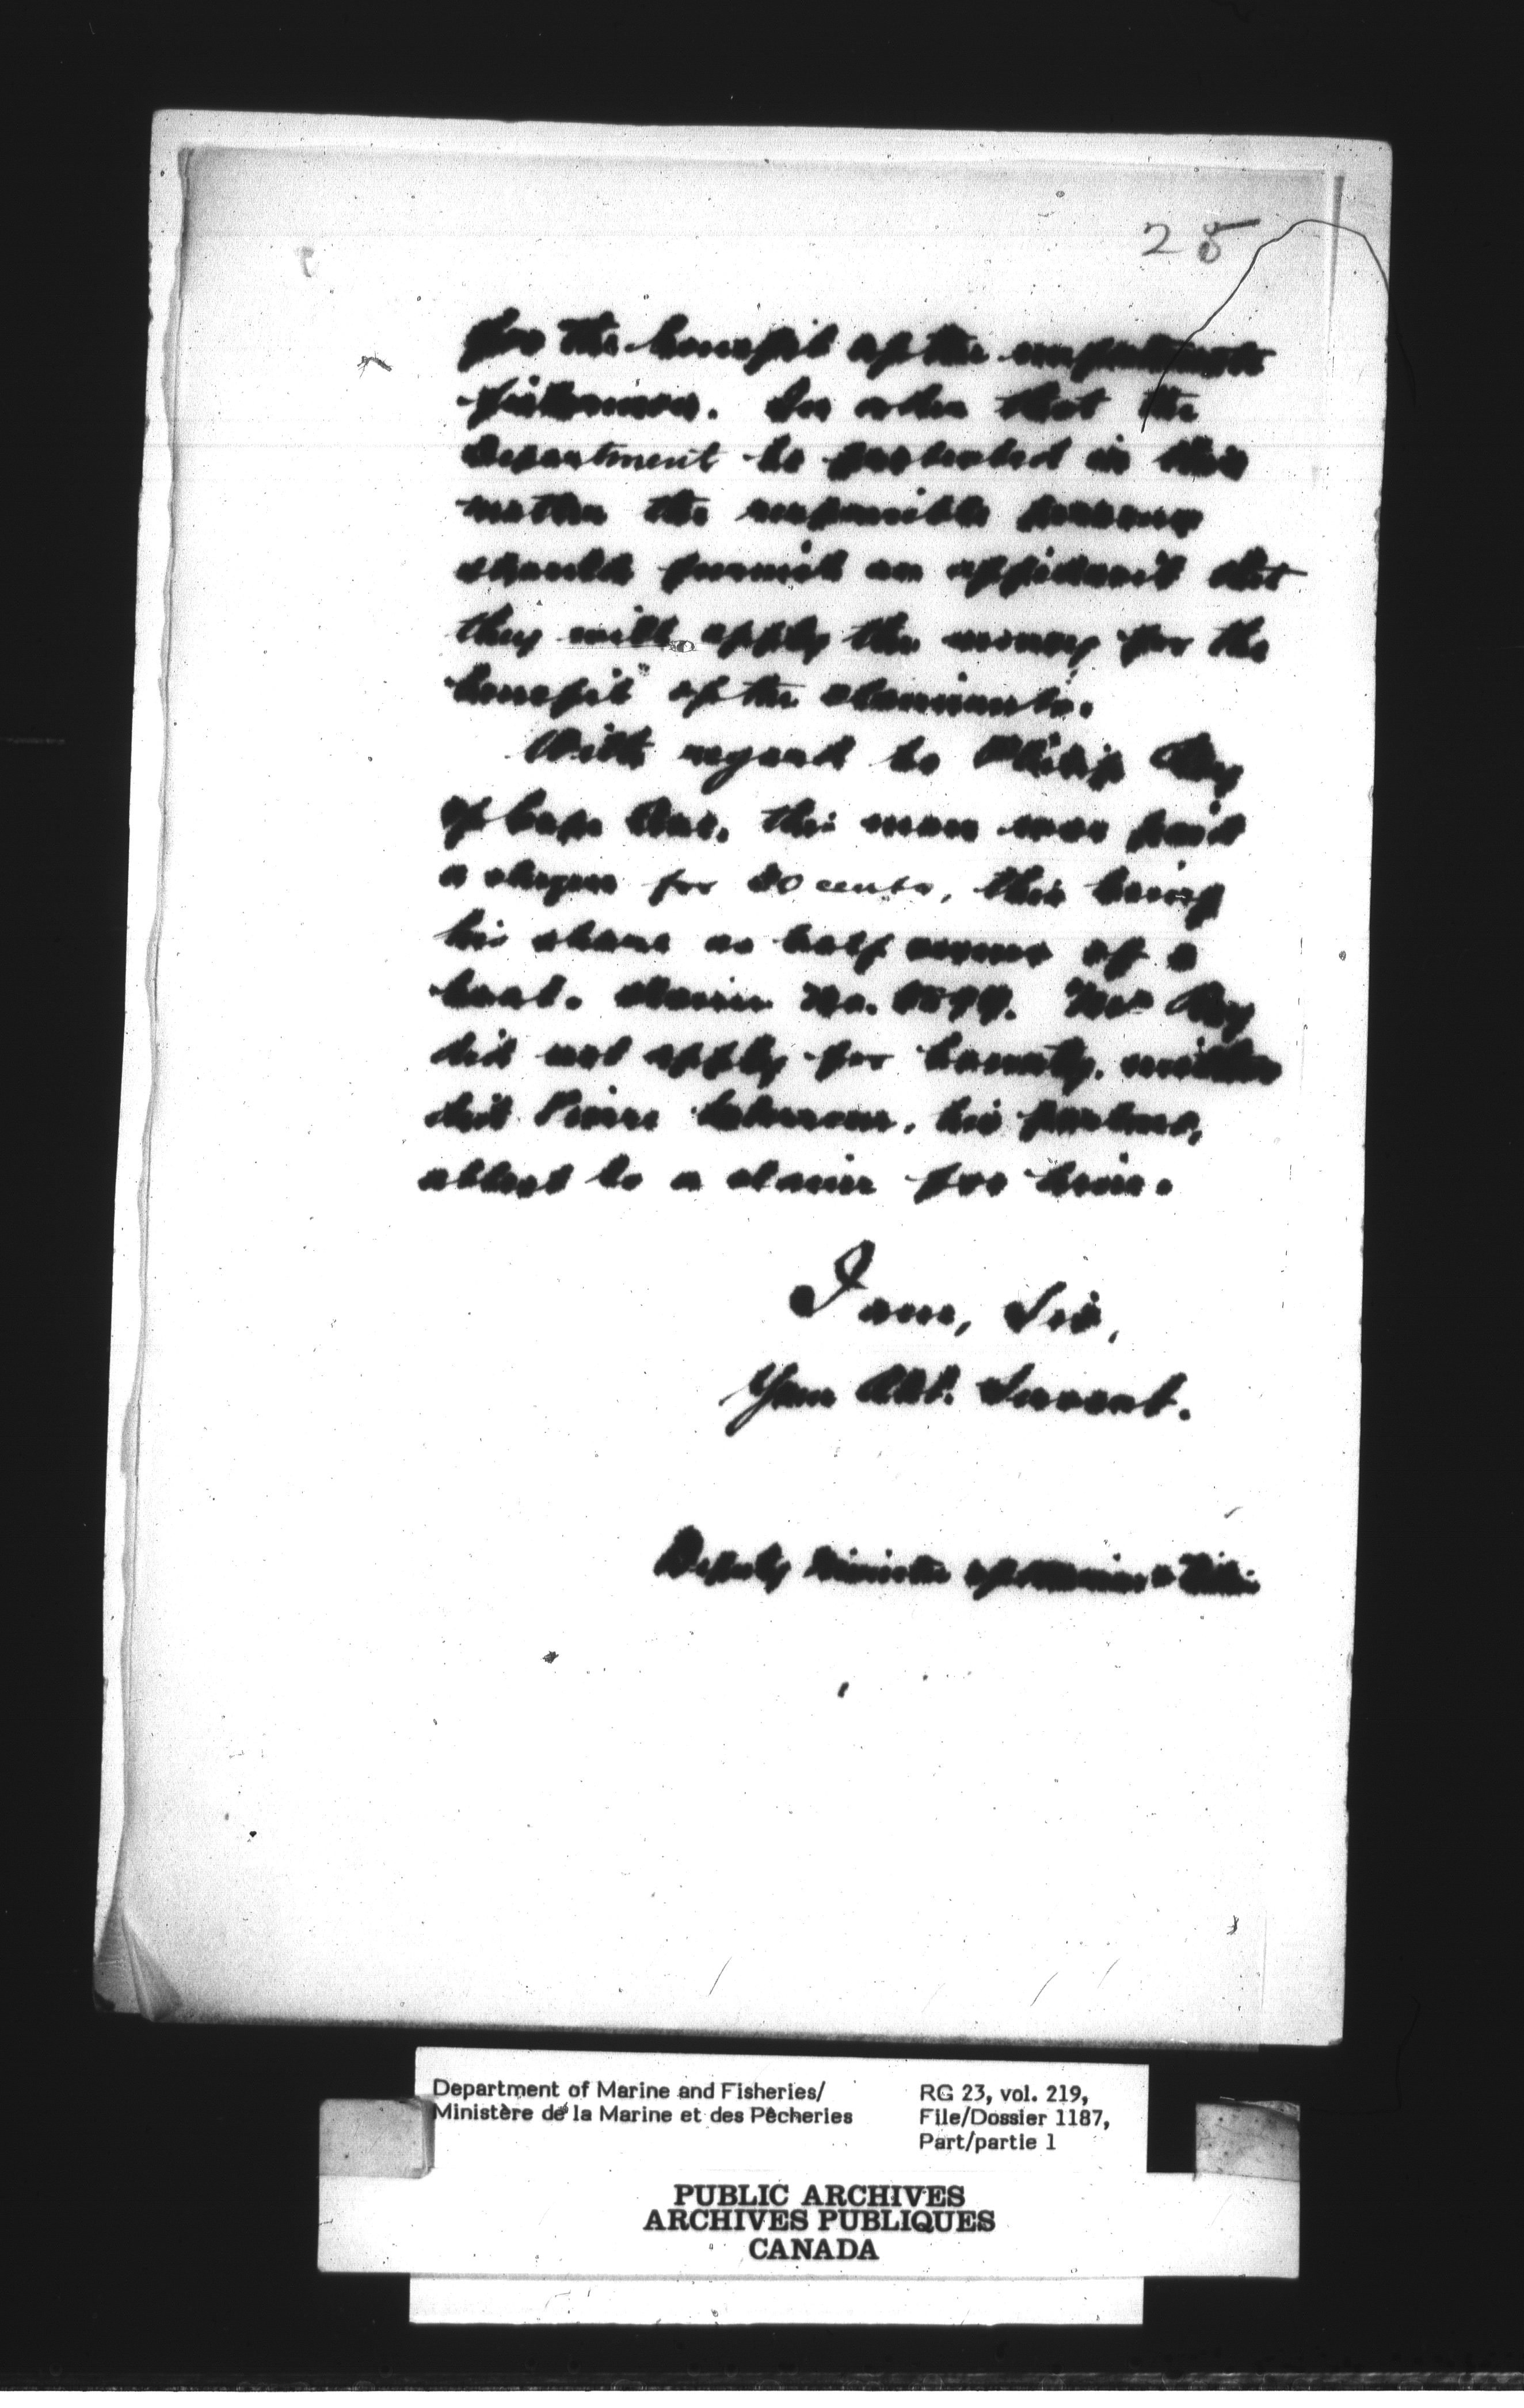 25
for the benefit of the unfortunate
fishermen. In order that the
Department be protected in this
matter the responsible persons
should furnish an affidavit that
they will apply the money for the
benefit of the claimants.
With regard to Philip Roy
of Cape this man was paid
a cheque for 50 cents, this being
his share as half owner of a
boat. Claim No. Mr Roy
did not apply for bounty, neither
did Pierre his partner,
attest to a claim for him.
I am, Sir,
Your Obt. Servant.
Deputy Minister of Marine &
Department of Marine and Fisheries/
Ministère de la Marine et des Pêcheries
RG 23, vol. 219,
File/Dossier 1187,
Part/partie 1
PUBLIC ARCHIVES
ARCHIVES PUBLIQUES
CANADA